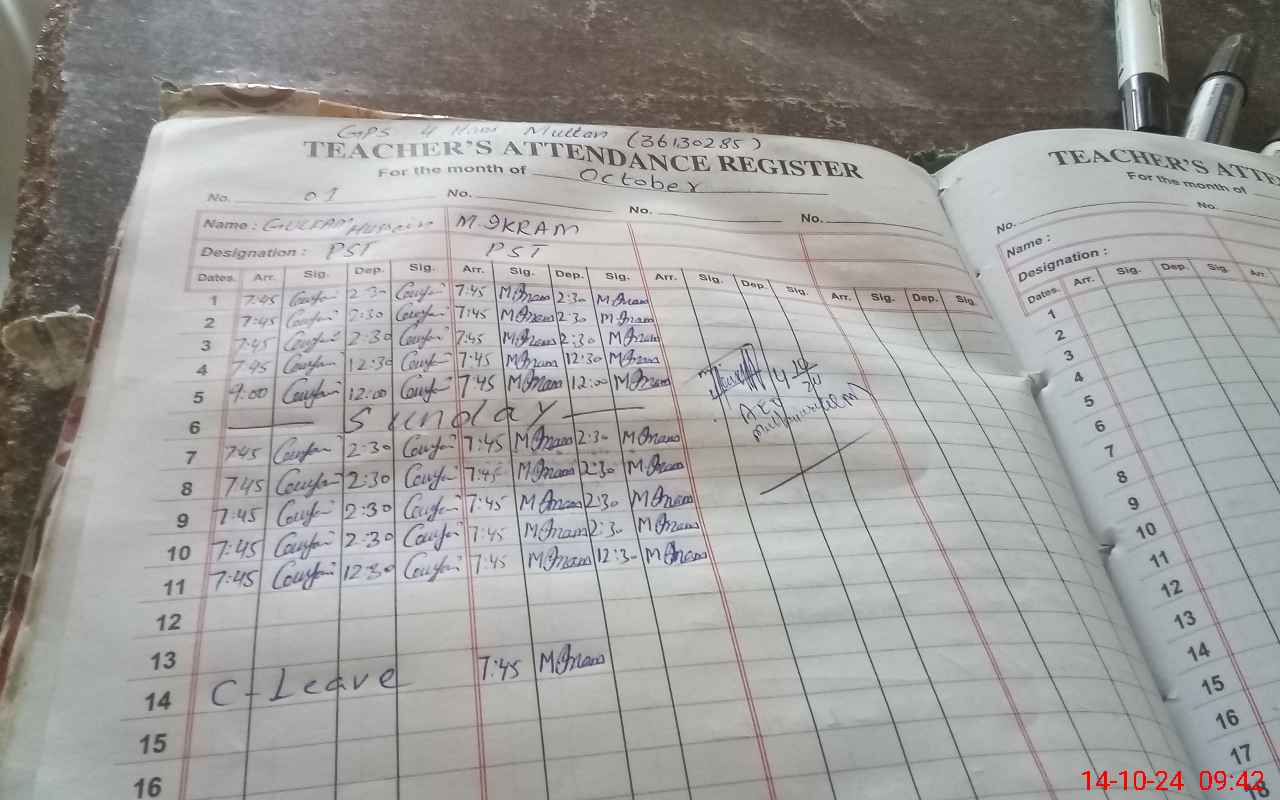 GPS 4 Hans Multan (36130285)
TEACHER'S ATTENDANCE REGISTER
For the month of October
No. 01 No. No. No.
Name : Hussain M. IKRAM
Designation : PST PST
Dates. Arr. Sig. Dep. Sig. Arr. Sig. Dep. Sig. Arr. Sig. Dep. Sig. Arr. Sig. Dep. Sig.
1 7:45 2:30 7:45 M Ikram 2:30 M Ikram
2 7:45 2:30 7:45 M Ikram 2:30 M Ikram
3 7:45 2:30 7:45 M Ikram 2:30 M Ikram
4 7:45 12:30 7:45 M Ikram 12:30 M Ikram
5 9:00 12:00 7:45 M Ikram 12:00 M Ikram
6 Sunday
7 7:45 2:30 7:45 M Ikram 2:30 M Ikram
8 7:45 2:30 7:45 M Ikram 2:30 M Ikram
9 7:45 2:30 7:45 M Ikram 2:30 M Ikram
10 7:45 2:30 7:45 M Ikram 2:30 M Ikram
11 7:45 12:30 7:45 M Ikram 12:30 M Ikram
12
13
14 C-Leave 7:45 M Ikram
15
16
AEO
TEACHER'S ATTENDA
For the month of
No. No.
Name :
Designation :
Dates. Arr. Sig. Dep. Sig. Arr.
1
2
3
4
5
6
7
8
9
10
11
12
13
14
15
16
17
18
14-10-24 09:42